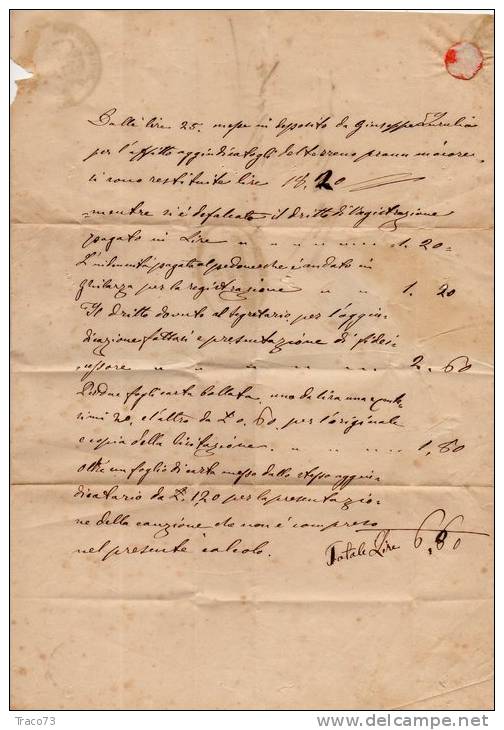 Dalle lire 25. messe in deposito da Giuseppe
per l'affitto aggiudicatogli del terreno
si sono restituite lire 18,20
mentre si è defalcato il dritto di registrazione
pagato in Lire " " " " " 1.20=
L'indennità pagata al pedone che è andato in
per la registrazione " " 1.20
Il dritto dovuto al segretario per l'aggiu
dicazione fattasi e presentazione di fidei
ussore " " " " " 2.60
Per due fogli carta bollata, uno da lira una e cente
simi 20, e l'altro da L 0.60, per l'originale
e copia della licitazione. " " " 1,80
oltre un foglio di carta messa dallo stesso aggiu
dicatario da L. 1.20 per la presentazio-
ne della cauzione che non è compreso
nel presente calcolo. Totale Lire 6,80
Traco73
delcampe.net